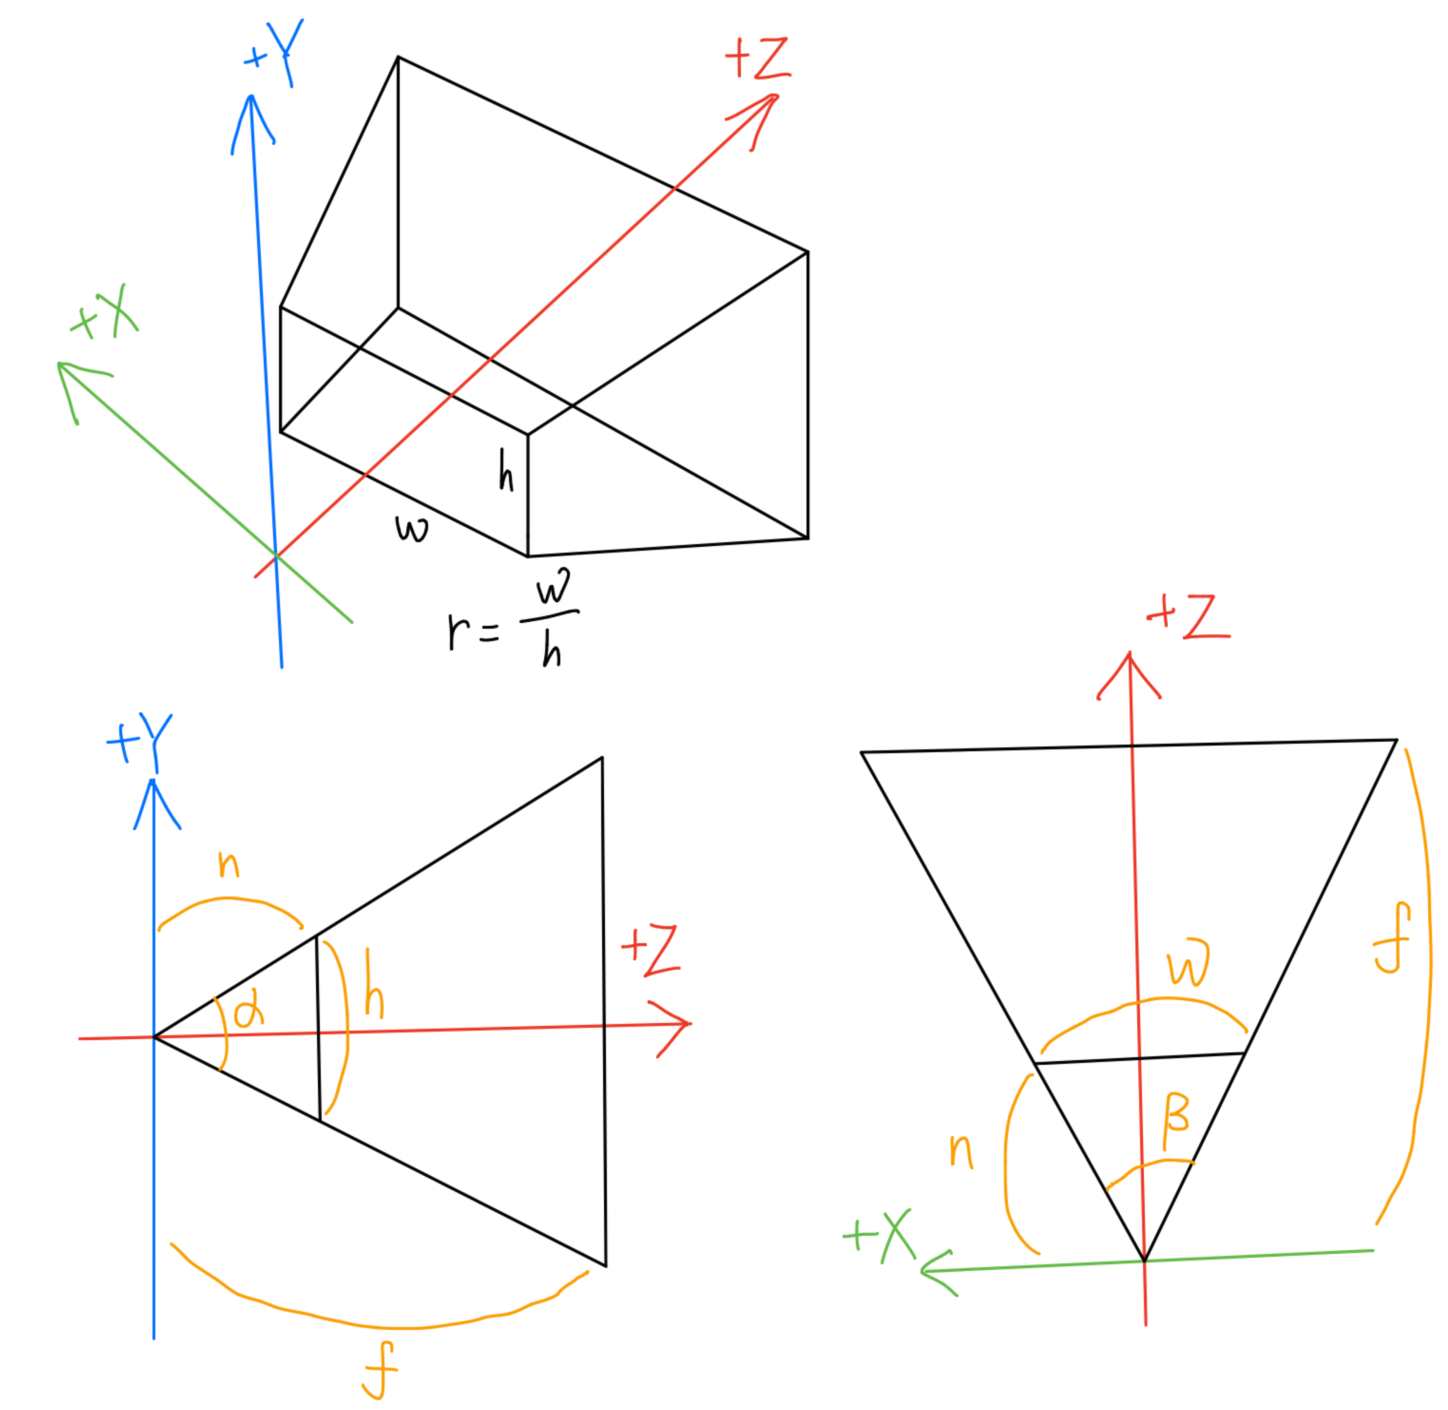 +Y
+Z
+X
h
w
r = w/h
+Y
n
α
h
+Z
f
+Z
w
f
β
n
+X